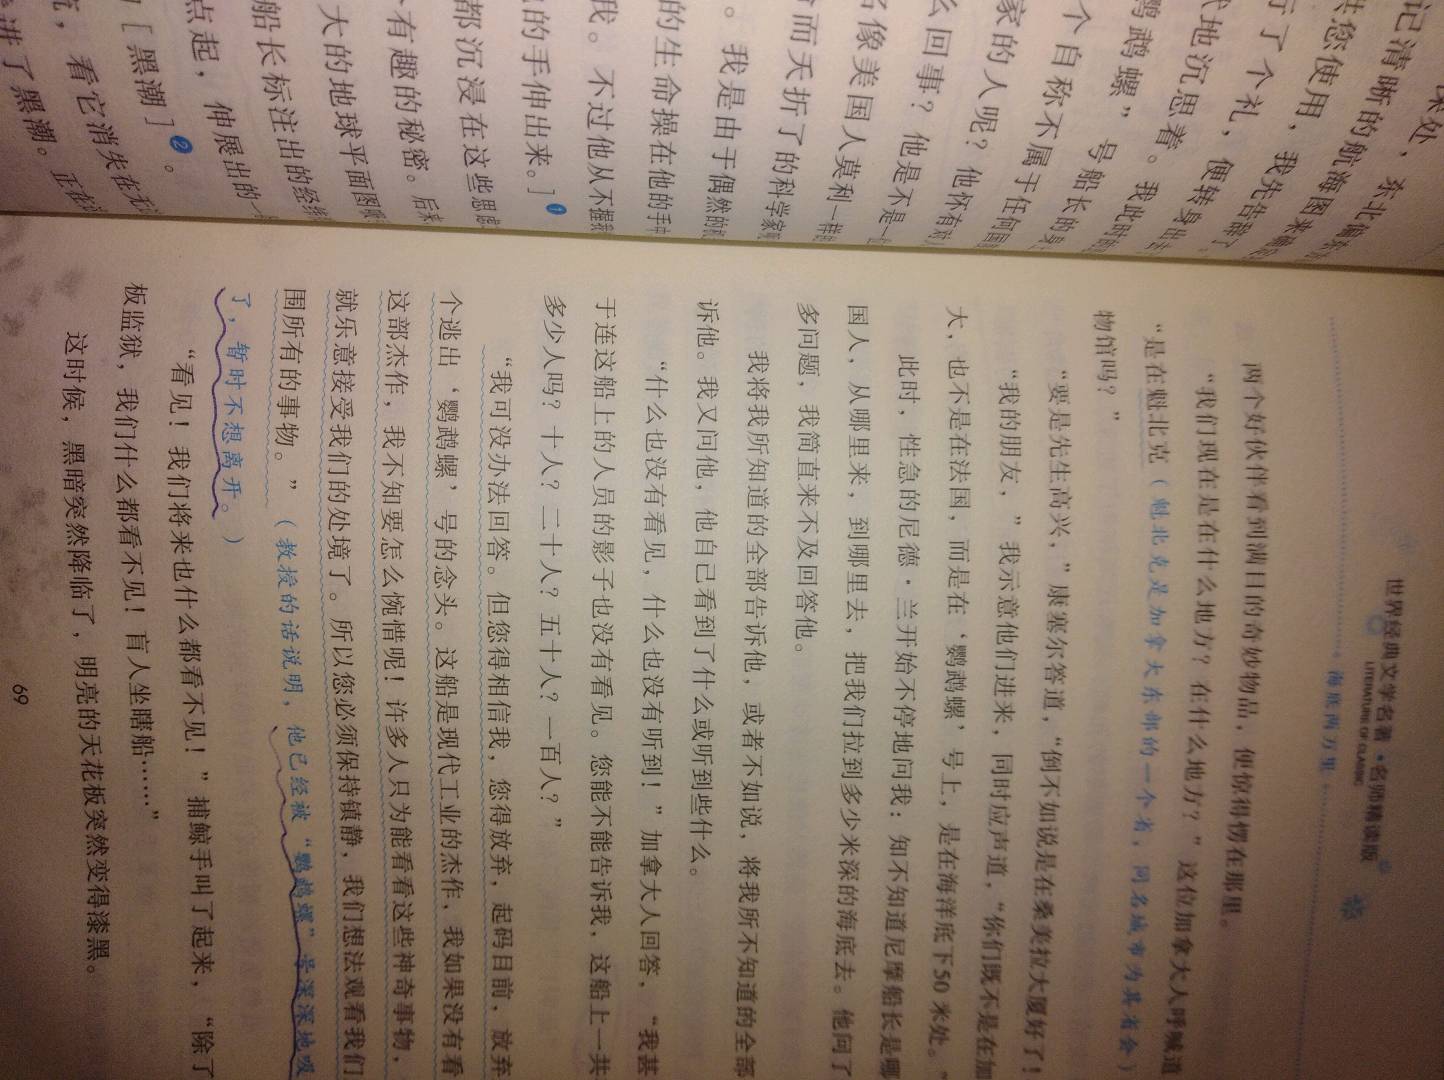 深处，东北偏东
记清晰的航海图来确定
供您使用，我先告辞了。
行了个礼，便转身出去
代地沉思着。我此时的
鹦鹉螺”号船长的身上
个自称不属于任何国
家的人呢？他怀有对人
么回事？他是不是一位
名像美国人莫利一样
而夭折了的科学家
。我是由于偶然的机
的生命操在他的手中
我。不过他从不握我
的手伸出来。］①
都沉浸在这些思虑
有趣的秘密。后来
大的地球平面图
船长标注出的经纬
点起，伸展出的一
［黑潮］②。
流，看它消失在
进了黑潮。正在
世界经典文学名著·名师精读版
LITERATURE OF CLASSIC
海底两万里
两个好伙伴看到满目的奇妙物品，便惊得愣在那里。
“我们现在是在什么地方？在什么地方？”这位加拿大人呼喊道
“是在魁北克（魁北克是加拿大东部的一个省，同名城市为其省会）
物馆吗？”
“要是先生高兴，”康塞尔答道，“倒不如说是在桑美拉大厦好了！
“我的朋友，”我示意他们进来，同时应声道，“你们既不是在加
大，也不是在法国，而是在‘鹦鹉螺’号上，是在海洋底下50米处。”
此时，性急的尼德·兰开始不停地问我：知不知道尼摩船长是哪
国人，从哪里来，到哪里去，把我们拉到多少米深的海底去。他问了
多问题，我简直来不及回答他。
我将我所知道的全部告诉他，或者不如说，将我所不知道的全部
诉他。我又问他，他自己看到了什么或听到些什么。
“什么也没有看见，什么也没有听到！”加拿大人回答，“我甚
于连这船上的人员的影子也没有看见。您能不能告诉我，这船上一共
多少人吗？十人？二十人？五十人？一百人？”
“我可没办法回答。但您得相信我，您得放弃，起码目前，放弃
个逃出‘鹦鹉螺’号的念头。这船是现代工业的杰作，我如果没有看
这部杰作，我不知要怎么惋惜呢！许多人只为能看看这些神奇事物，
就乐意接受我们的处境了。所以您必须保持镇静，我们想法观看我们
围所有的事物。”（教授的话说明，他已经被“鹦鹉螺”号深深地吸
了，暂时不想离开。）
“看见！我们将来也什么都看不见！”捕鲸手叫了起来，“除了
板监狱，我们什么都看不见！盲人坐瞎船……”
这时候，黑暗突然降临了，明亮的天花板突然变得漆黑。
69